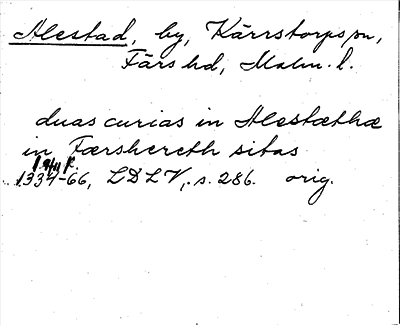 Alestad, by, Kärrstorps sn,
Färs hd, Malm. l.
duas curias in Alestæthæ
in Færshereth sitas
1334-66, LDLV, s. 286. orig.